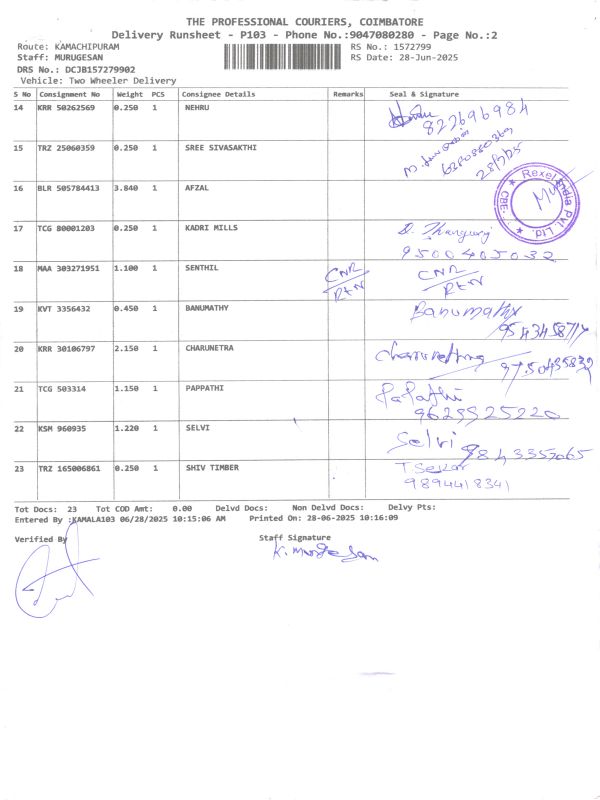 THE PROFESSIONAL COURIERS, COIMBATORE
Delivery Runsheet - P103 - Phone No.:9047080280 - Page No.:2
Route: KAMACHIPURAM RS No.: 1572799
Staff: MURUGESAN RS Date: 28-Jun-2025
DRS No.: DCJB157279902
Vehicle: Two Wheeler Delivery
S No Consignment No Weight PCS Consignee Details Remarks Seal & Signature
14 KRR 50262569 0.250 1 NEHRU 822696984
15 TRZ 25060359 0.250 1 SREE SIVASAKTHI
28/7/25
16 BLR 505784413 3.840 1 AFZAL Rexel India Pvt. Ltd. CBE.
17 TCG 80001203 0.250 1 KADRI MILLS
9500405032
18 MAA 303271951 1.100 1 SENTHIL CNR/RTN CNR/RTN
19 KVT 3356432 0.450 1 BANUMATHY Banumathy
20 KRR 30106797 2.150 1 CHARUNETRA
9750435832
21 TCG 503314 1.150 1 PAPPATHI PaPathi
9629525220
22 KSM 960935 1.220 1 SELVI Selvi 9843357065
23 TRZ 165006861 0.250 1 SHIV TIMBER T. Sekar
9894418341
Tot Docs: 23 Tot COD Amt: 0.00 Delvd Docs: Non Delvd Docs: Delvy Pts:
Entered By :KAMALA103 06/28/2025 10:15:06 AM Printed On: 28-06-2025 10:16:09
Verified By Staff Signature
K. Murugesan